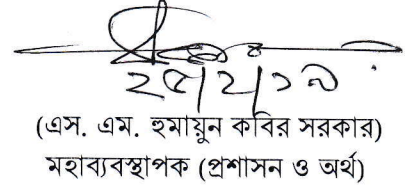 ২৫/২/১৯
(এস. এম. হুমায়ুন কবির সরকার)
মহাব্যবস্থাপক (প্রশাসন ও অর্থ)